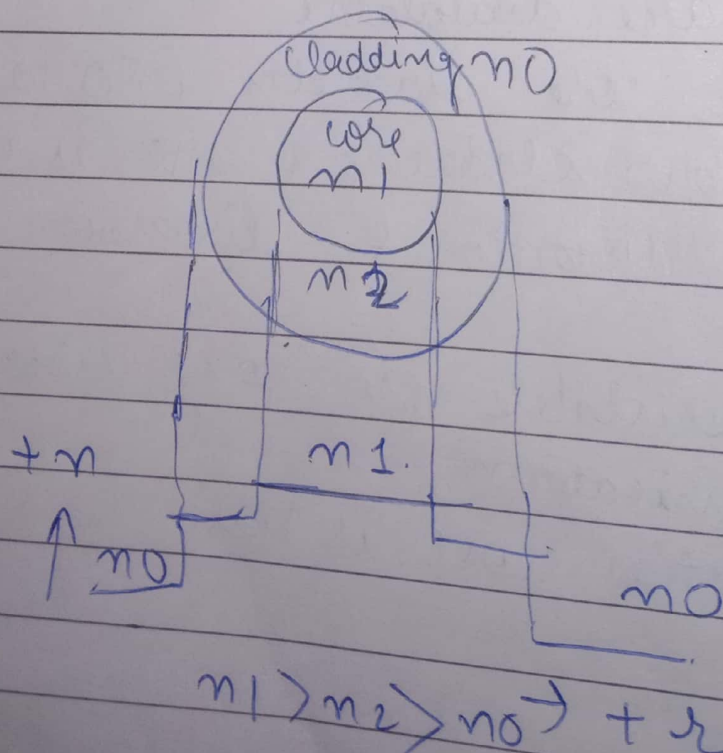 cladding n0
core
n1
n2
+n
n1.
↑ n0
n0
n1 > n2 > n0 → + r